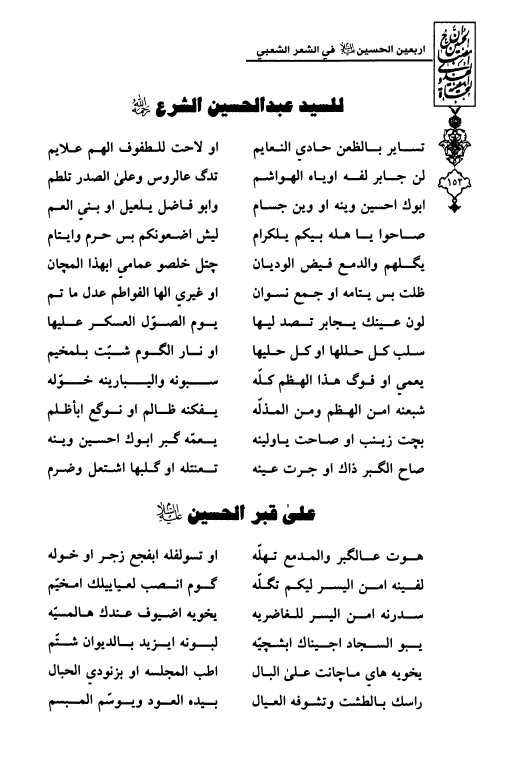 اربعين الحسين عليه السلام في الشعر الشعبي
١٥٢
للسيد عبدالحسين الشرع رحمه الله
تساير بالظعن حادي النعايم او لاحت للطفوف الهم علايم
لن جابر لفه اوياه الهواشم تدگ عالروس وعلىٰ الصدر تلطم
ابوك احسين وينه او وين جسام وابو فاضل يلعيل او بني العم
صاحوا يا هله بيكم يلكرام ليش اضعونكم بس حرم وايتام
يگلهم والدمع فيض الوديان چتل خلصو عمامي ابهذا المچان
ظلت بس يتامه او جمع نسوان او غيري الها الفواطم عدل ما تم
لون عينك يجابر تصد ليها يوم الصوّل العسكر عليها
سلب كل حللها او كل حليها او نار الگوم شبّت بلمخيم
يعمي او فوگ هذا الهظم كلّه سبونه واليبارينه خوّله
شبعنه امن الهظم ومن المذلّه يفكنه ظالم او نوگع ابأظلم
بچت زينب او صاحت ياولينه يعمّه گبر ابوك احسين وينه
صاح الگبر ذاك او جرت عينه تعنتله او گلبها اشتعل وضرم
علىٰ قبر الحسين عليه السلام
هوت عالگبر والمدمع تهلّه او تسولفله ابفجع زجر او خوله
لفينه امن اليسر ليكم تگلّه گوم انصب لعياييلك امخيّم
سدرنه امن اليسر للغاضريه يخويه اضيوف عندك هالمسيّه
يبو السجاد اجيناك ابشچيّه لبونه ايزيد بالديوان شتّم
يخويه هاي ماچانت علىٰ البال اطب المجلسه او بزنودي الحبال
راسك بالطشت وتشوفه العيال بيده العود ويوسّم المبسم